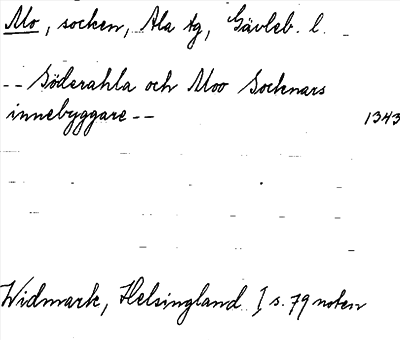 Mo, socken, Ala tg, Gävleb. l.
-- Söderahla och Moo Socknars
innebyggare -- 1343
Widmark, Helsingland I s. 79 noten